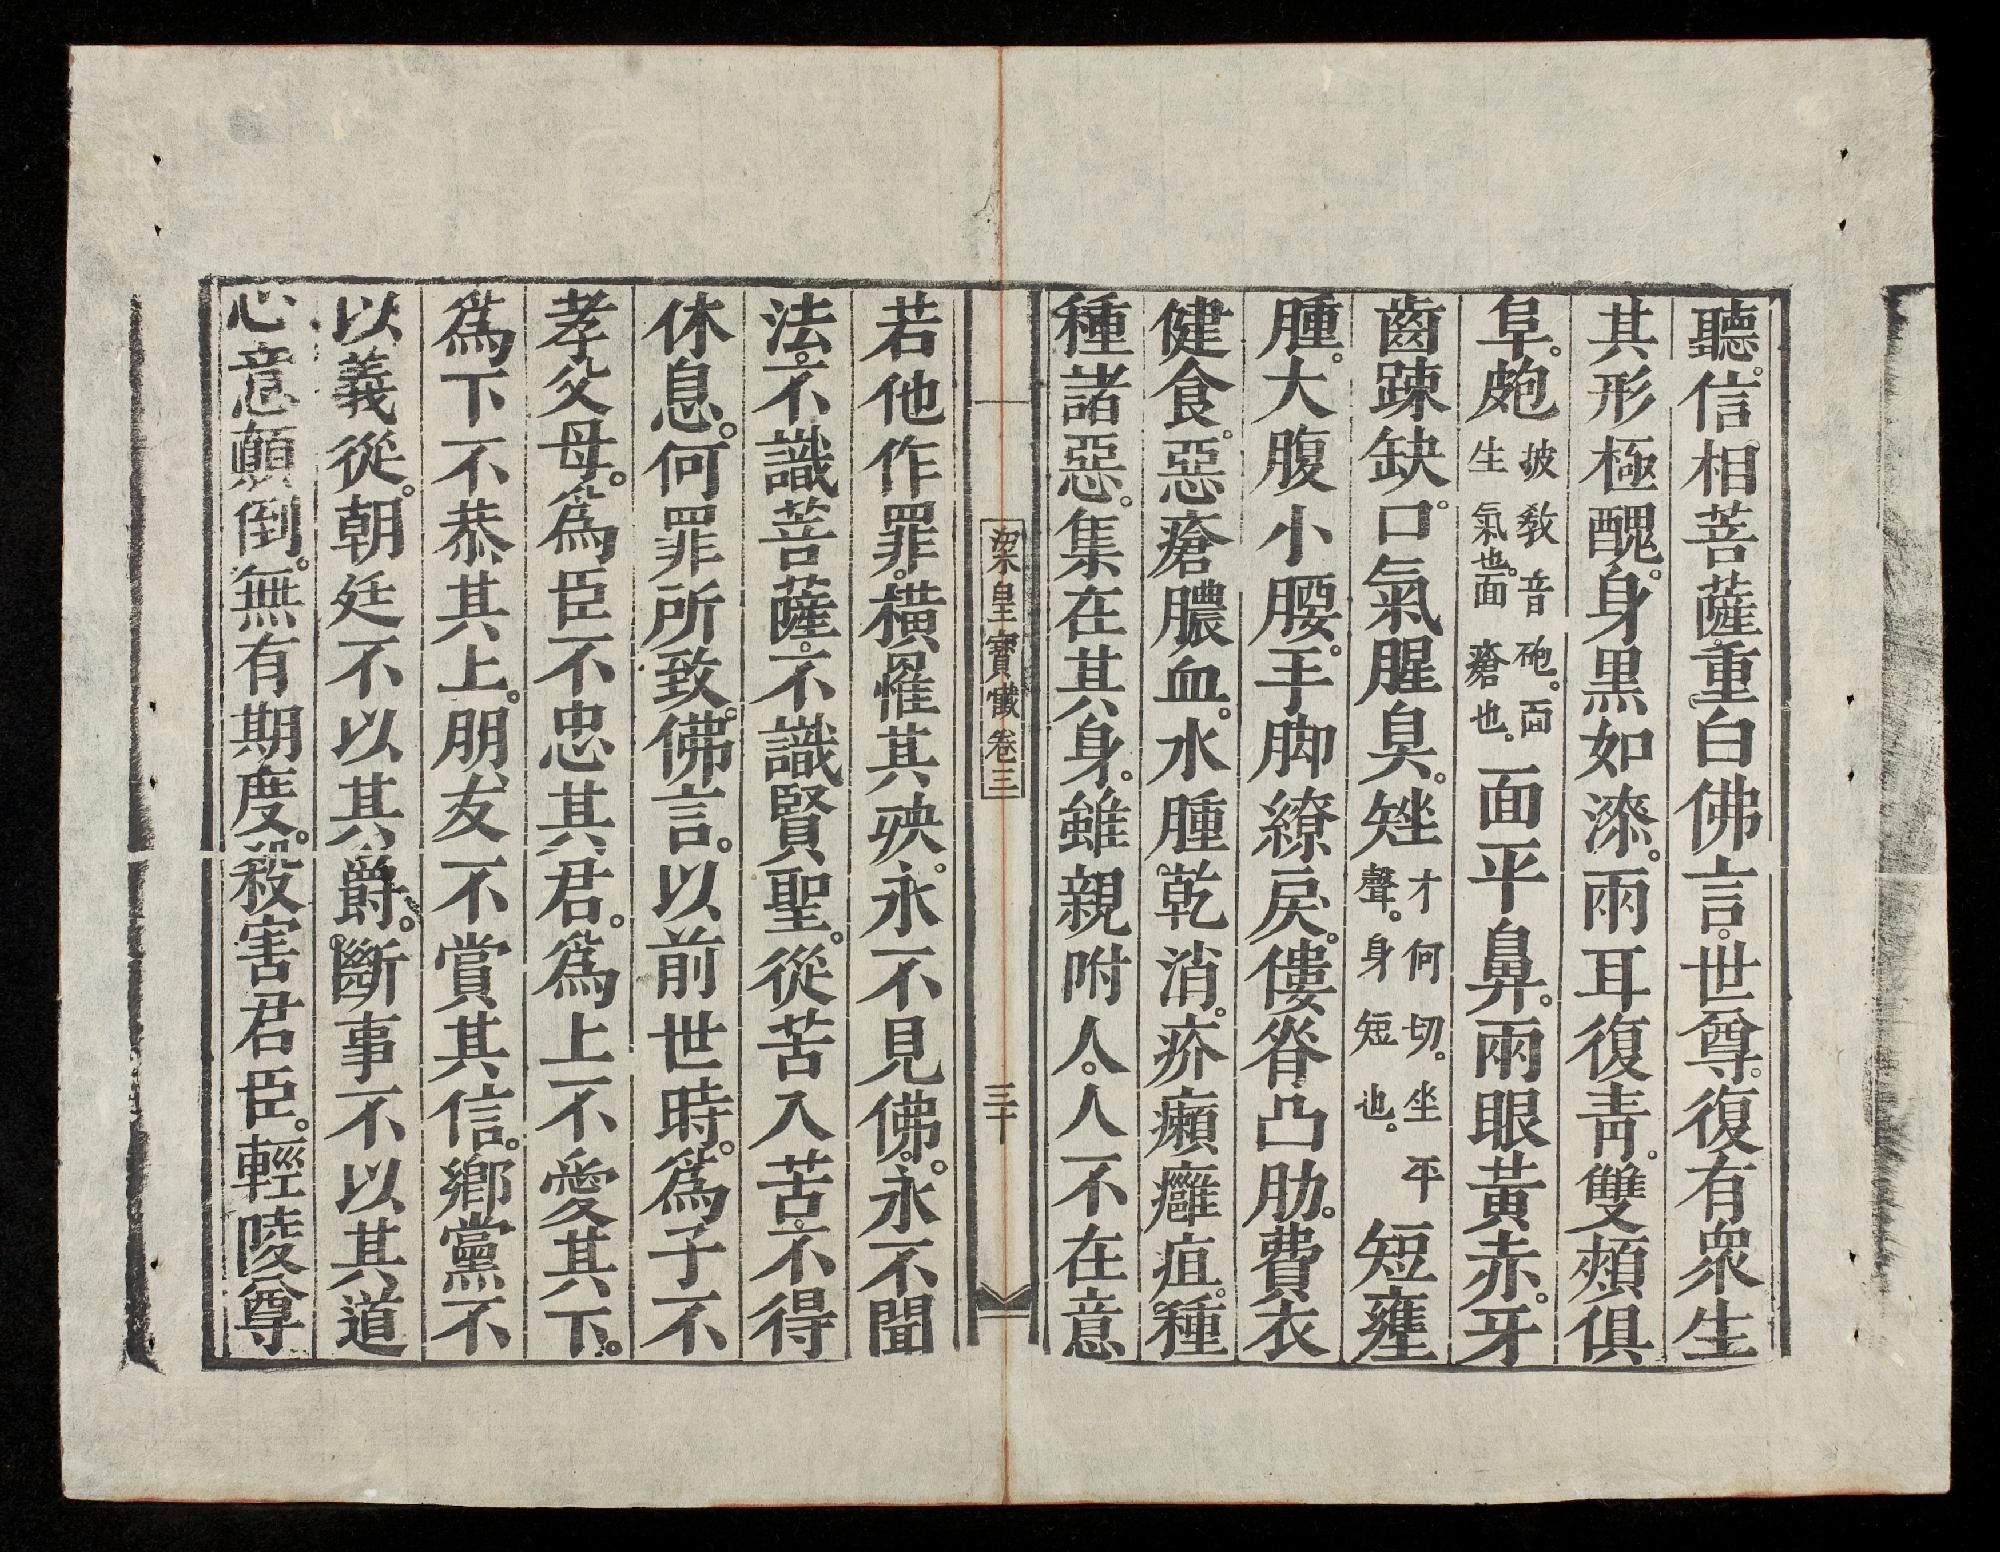 聽。信相菩薩。重白佛言。世尊。復有衆生
其形極醜。身黑如漆。兩耳復青。雙頰俱
阜。皰披教音砲。面生氣也。面瘡也。面平鼻。兩眼黃赤。牙
齒疎缺。口氣腥臭。矬才何切。坐平聲。身短也。短壅
腫。大腹小腰。手脚繚戾。僂脊凸肋。費衣
健食。惡瘡膿血。水腫。乾消。疥癩癰疽。種
種諸惡。集在其身。雖親附人。人不在意
梁皇寶懺卷三
三十
若他作罪。橫罹其殃。永不見佛。永不聞
法。不識菩薩。不識賢聖。從苦入苦。不得
休息。何罪所致。佛言。以前世時。爲子不
孝父母。爲臣不忠其君。爲上不愛其下。
爲下不恭其上。朋友不賞其信。鄉黨不
以義從。朝廷不以其爵。斷事不以其道
心意顛倒。無有期度。殺害君臣。輕陵尊